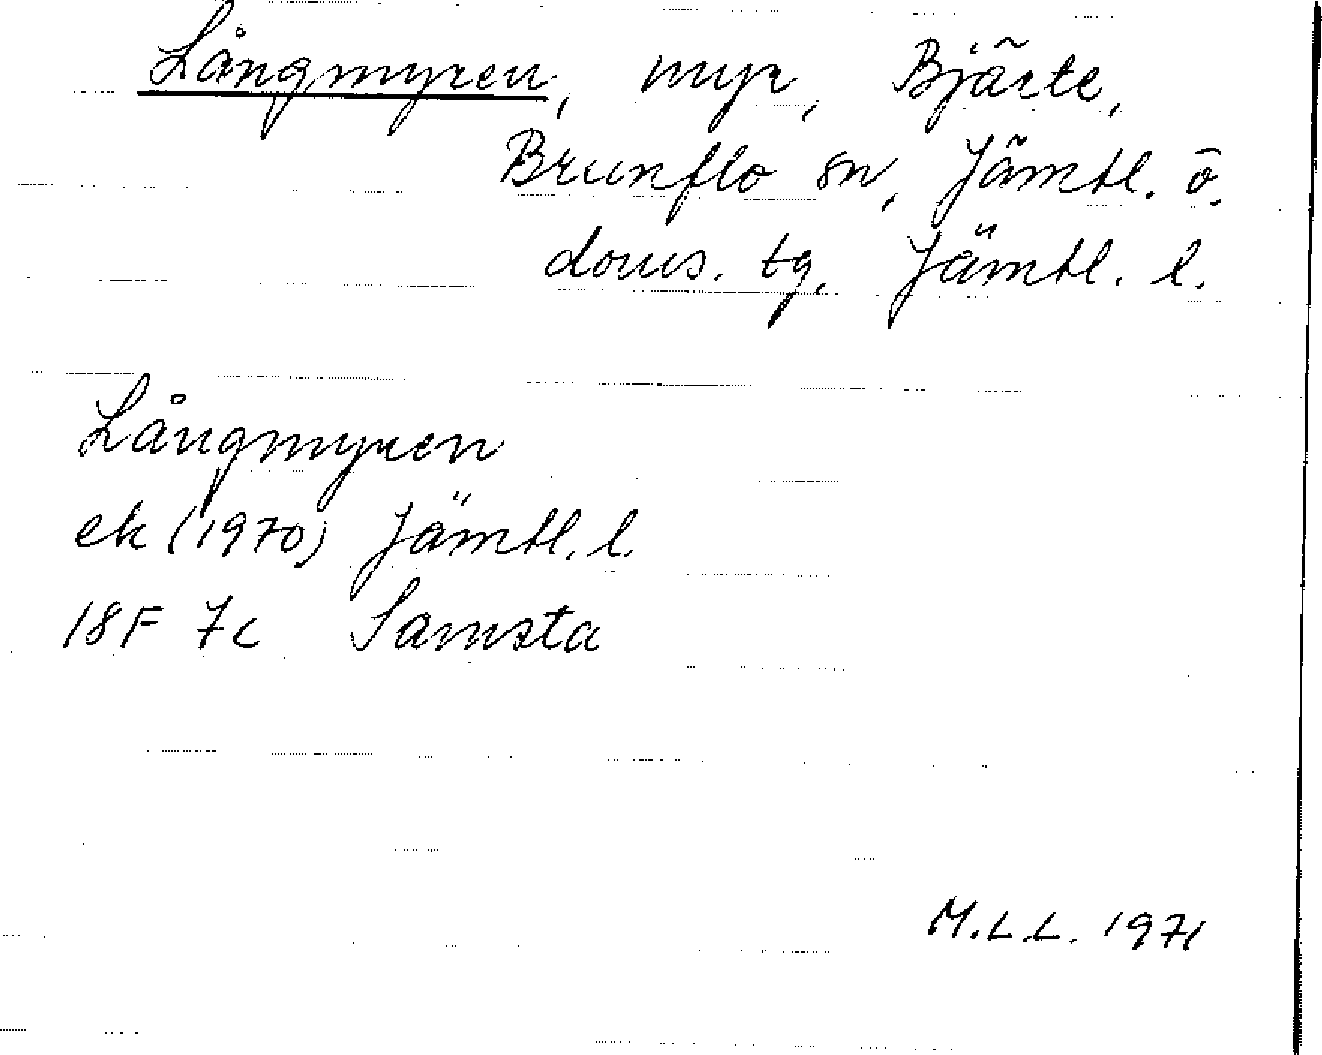 Långmyren, myr, Bjärte,
Brunflo sn, Jämtl. ö.
doms. tg, Jämtl. l.
Långmyren
ek (1970) Jämtl. l.
18F 7c Samsta
M.L.L. 1971